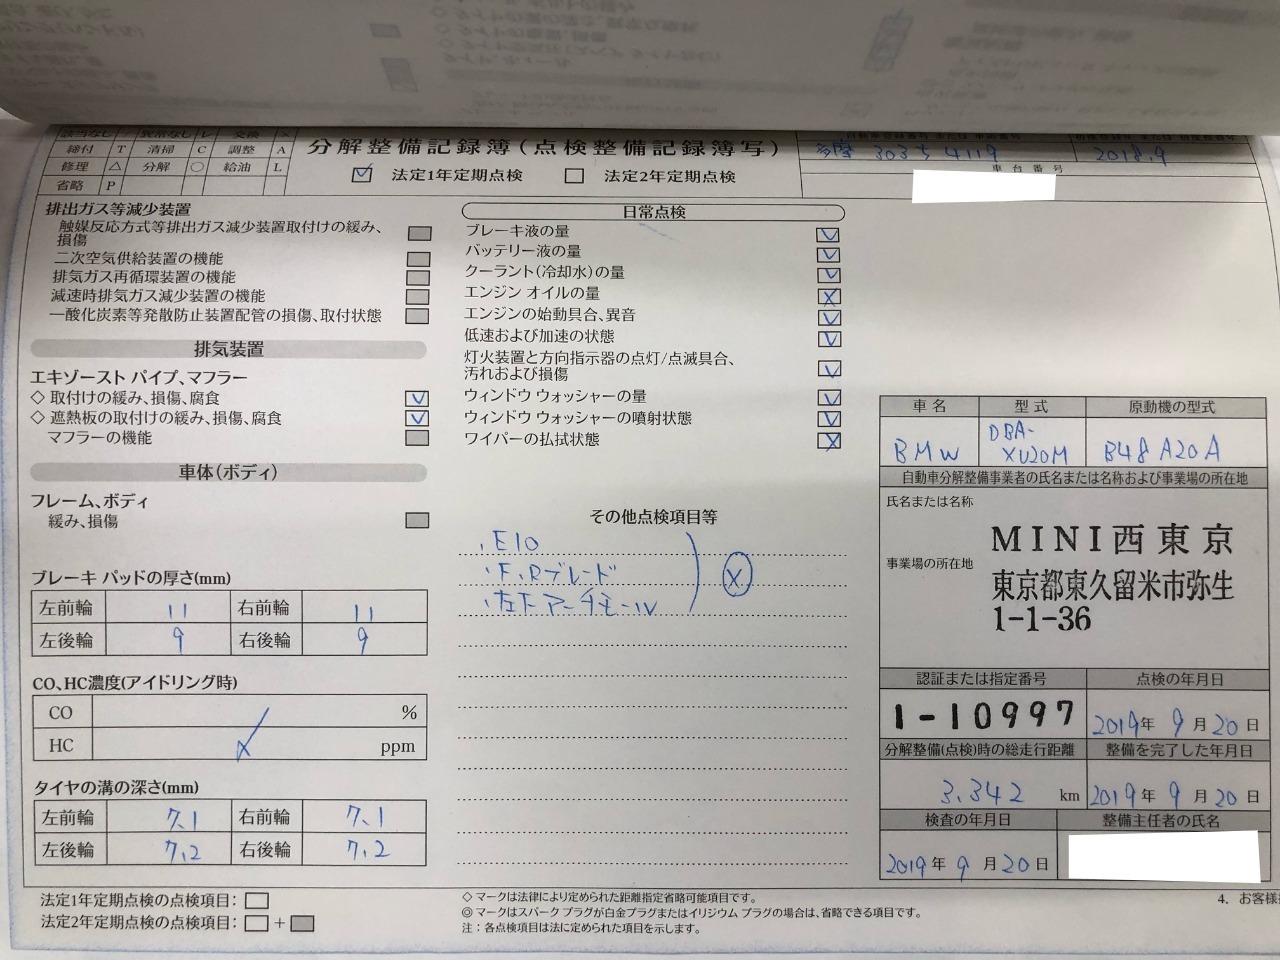 該当なし 異常なし レ 交換 ×
締付 T 清掃 C 調整 A
修理 △ 分解 ○ 給油 L
省略 P
分解整備記録簿(点検整備記録簿写)
法定1年定期点検 法定2年定期点検
多摩 303 ち 4119
2018.9
車台番号
排出ガス等減少装置
触媒反応方式等排出ガス減少装置取付けの緩み、
損傷
二次空気供給装置の機能
排気ガス再循環装置の機能
減速時排気ガス減少装置の機能
一酸化炭素等発散防止装置配管の損傷、取付状態
排気装置
エキゾースト パイプ、マフラー
◇ 取付けの緩み、損傷、腐食 レ
◇ 遮熱板の取付けの緩み、損傷、腐食 レ
マフラーの機能
車体(ボディ)
フレーム、ボディ
緩み、損傷
ブレーキ パッドの厚さ(mm)
左前輪 11 右前輪 11
左後輪 9 右後輪 9
CO、HC濃度(アイドリング時)
CO %
HC ppm
タイヤの溝の深さ(mm)
左前輪 7.1 右前輪 7.1
左後輪 7.2 右後輪 7.2
日常点検
ブレーキ液の量 レ
バッテリー液の量 レ
クーラント(冷却水)の量 レ
エンジン オイルの量 ×
エンジンの始動具合、異音 レ
低速および加速の状態 レ
灯火装置と方向指示器の点灯/点滅具合、
汚れおよび損傷 レ
ウィンドウ ウォッシャーの量 レ
ウィンドウ ウォッシャーの噴射状態 レ
ワイパーの払拭状態 ×
その他点検項目等
・E10
・F,Rブレード
・左下アーチモール
×
車名 型式 原動機の型式
BMW DBA-XU20M B48A20A
自動車分解整備事業者の氏名または名称および事業場の所在地
氏名または名称
MINI西東京
事業場の所在地
東京都東久留米市弥生
1-1-36
認証または指定番号 点検の年月日
1-10997 2019年 9月 20日
分解整備(点検)時の総走行距離 整備を完了した年月日
3,342 km 2019年 9月 20日
検査の年月日 整備主任者の氏名
2019年 9月 20日
法定1年定期点検の点検項目:
法定2年定期点検の点検項目: +
◇ マークは法律により定められた距離指定省略可能項目です。
◎ マークはスパーク プラグが白金プラグまたはイリジウム プラグの場合は、省略できる項目です。
注:各点検項目は法に定められた項目を示します。
4. お客様